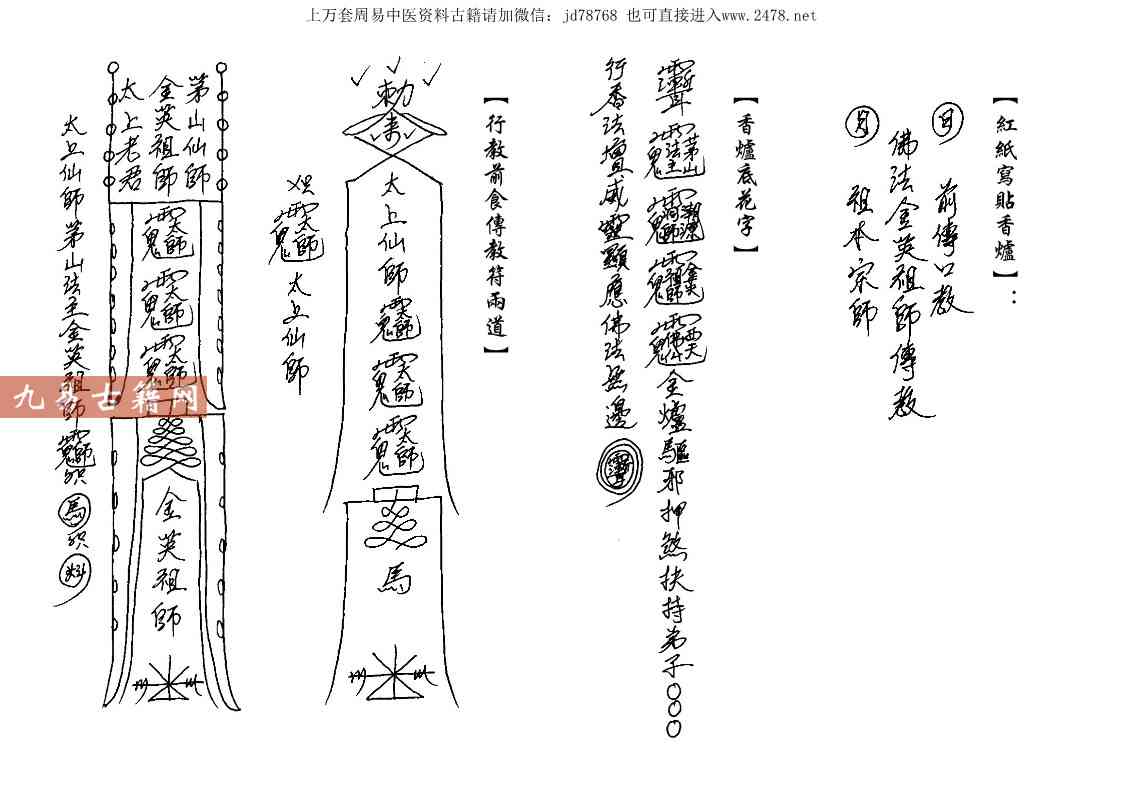 上万套周易中医资料古籍请加微信：jd78768 也可直接进入www.2478.net
【紅紙寫貼香爐】：
日 前傳口教
佛法金英祖師傳教
月 祖本宗師
【香爐底花字】
茅山法主 祖師 金英祖師 西天佛仙 全爐驅邪押煞扶持弟子○○○
行香法壇威靈顯應佛法無邊
【行教前食傳教符兩道】
勅
太上仙師
太師
太師
馬
太師 太上仙師
茅山仙師
金英祖師
太上老君
太師
太師
太師
金英祖師
太上仙師茅山法主金英祖師 馬
九易古籍网